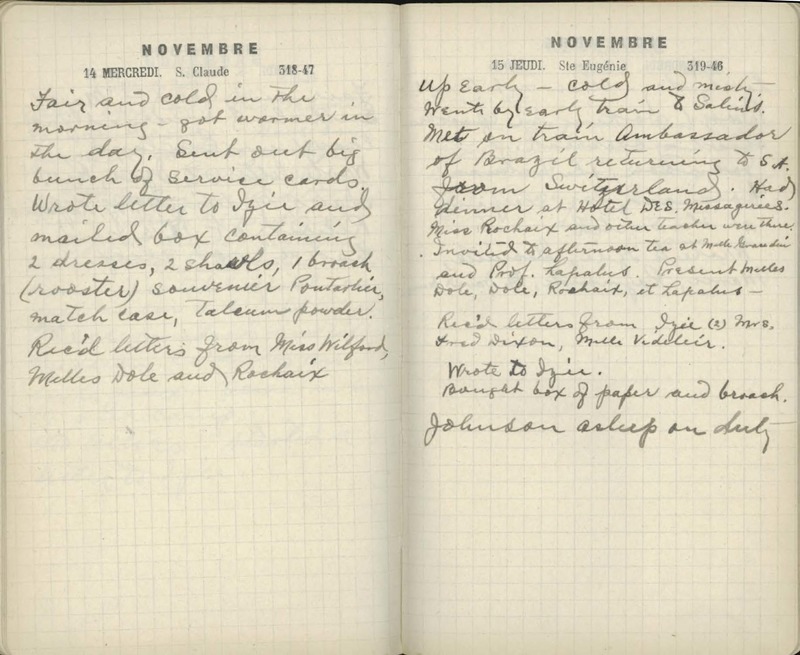 NOVEMBRE
14 MERCREDI. S. Claude 318-47
Fair and cold in the
morning - got warmer in
the day. Sent out big
bunch of service cards.
Wrote letter to Izie and
mailed box containing
2 dresses, 2 shawls, 1 broach
(rooster) souvenier Pontarlier,
match case, Talcum powder.
Rec'd letters from Miss Wilford,
Melles Dole and Rochaix
NOVEMBRE
15 JEUDI. Ste Eugénie 319-46
Up Early - cold and misty
Went by early train to Salins.
Met on train Ambassador
of Brazil returning to S.A.
from Switzerland. Had
dinner at Hotel DES. Messageries.
Miss Rochaix and other teacher were there.
Invited to afternoon tea at Melle
and Prof. Lapalus. Present Melles
Dole, Dole, Rochaix, et Lapalus -
Rec'd letters from Izie (2) Mrs.
Fred Dixon, Melle
Wrote to Izie.
Bought box of paper and broach.
Johnson asleep on duty